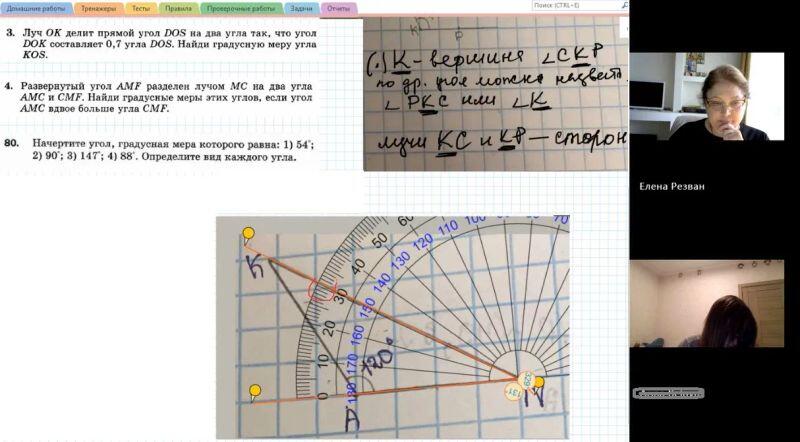 Домашние работы Тренажеры Тесты Правила Проверочные работы Задачи Отчеты
Поиск (CTRL+E)
3. Луч OK делит прямой угол DOS на два угла так, что угол
DOK составляет 0,7 угла DOS. Найди градусную меру угла
KOS.
4. Развернутый угол AMF разделен лучом MC на два угла
AMC и CMF. Найди градусные меры этих углов, если угол
AMC вдвое больше угла CMF.
80. Начертите угол, градусная мера которого равна: 1) 54°;
2) 90°; 3) 147°; 4) 88°. Определите вид каждого угла.
P
(.) K - вершина ∠CKP
по др. угол можно назвать
∠PKC или ∠K
лучи KC и KP – сторон
Елена Резван
K
120°
A
N
0 10 20 30 40 50 60
180 170 160 150 140 130 120 110 100 90 80 70
329°
131°